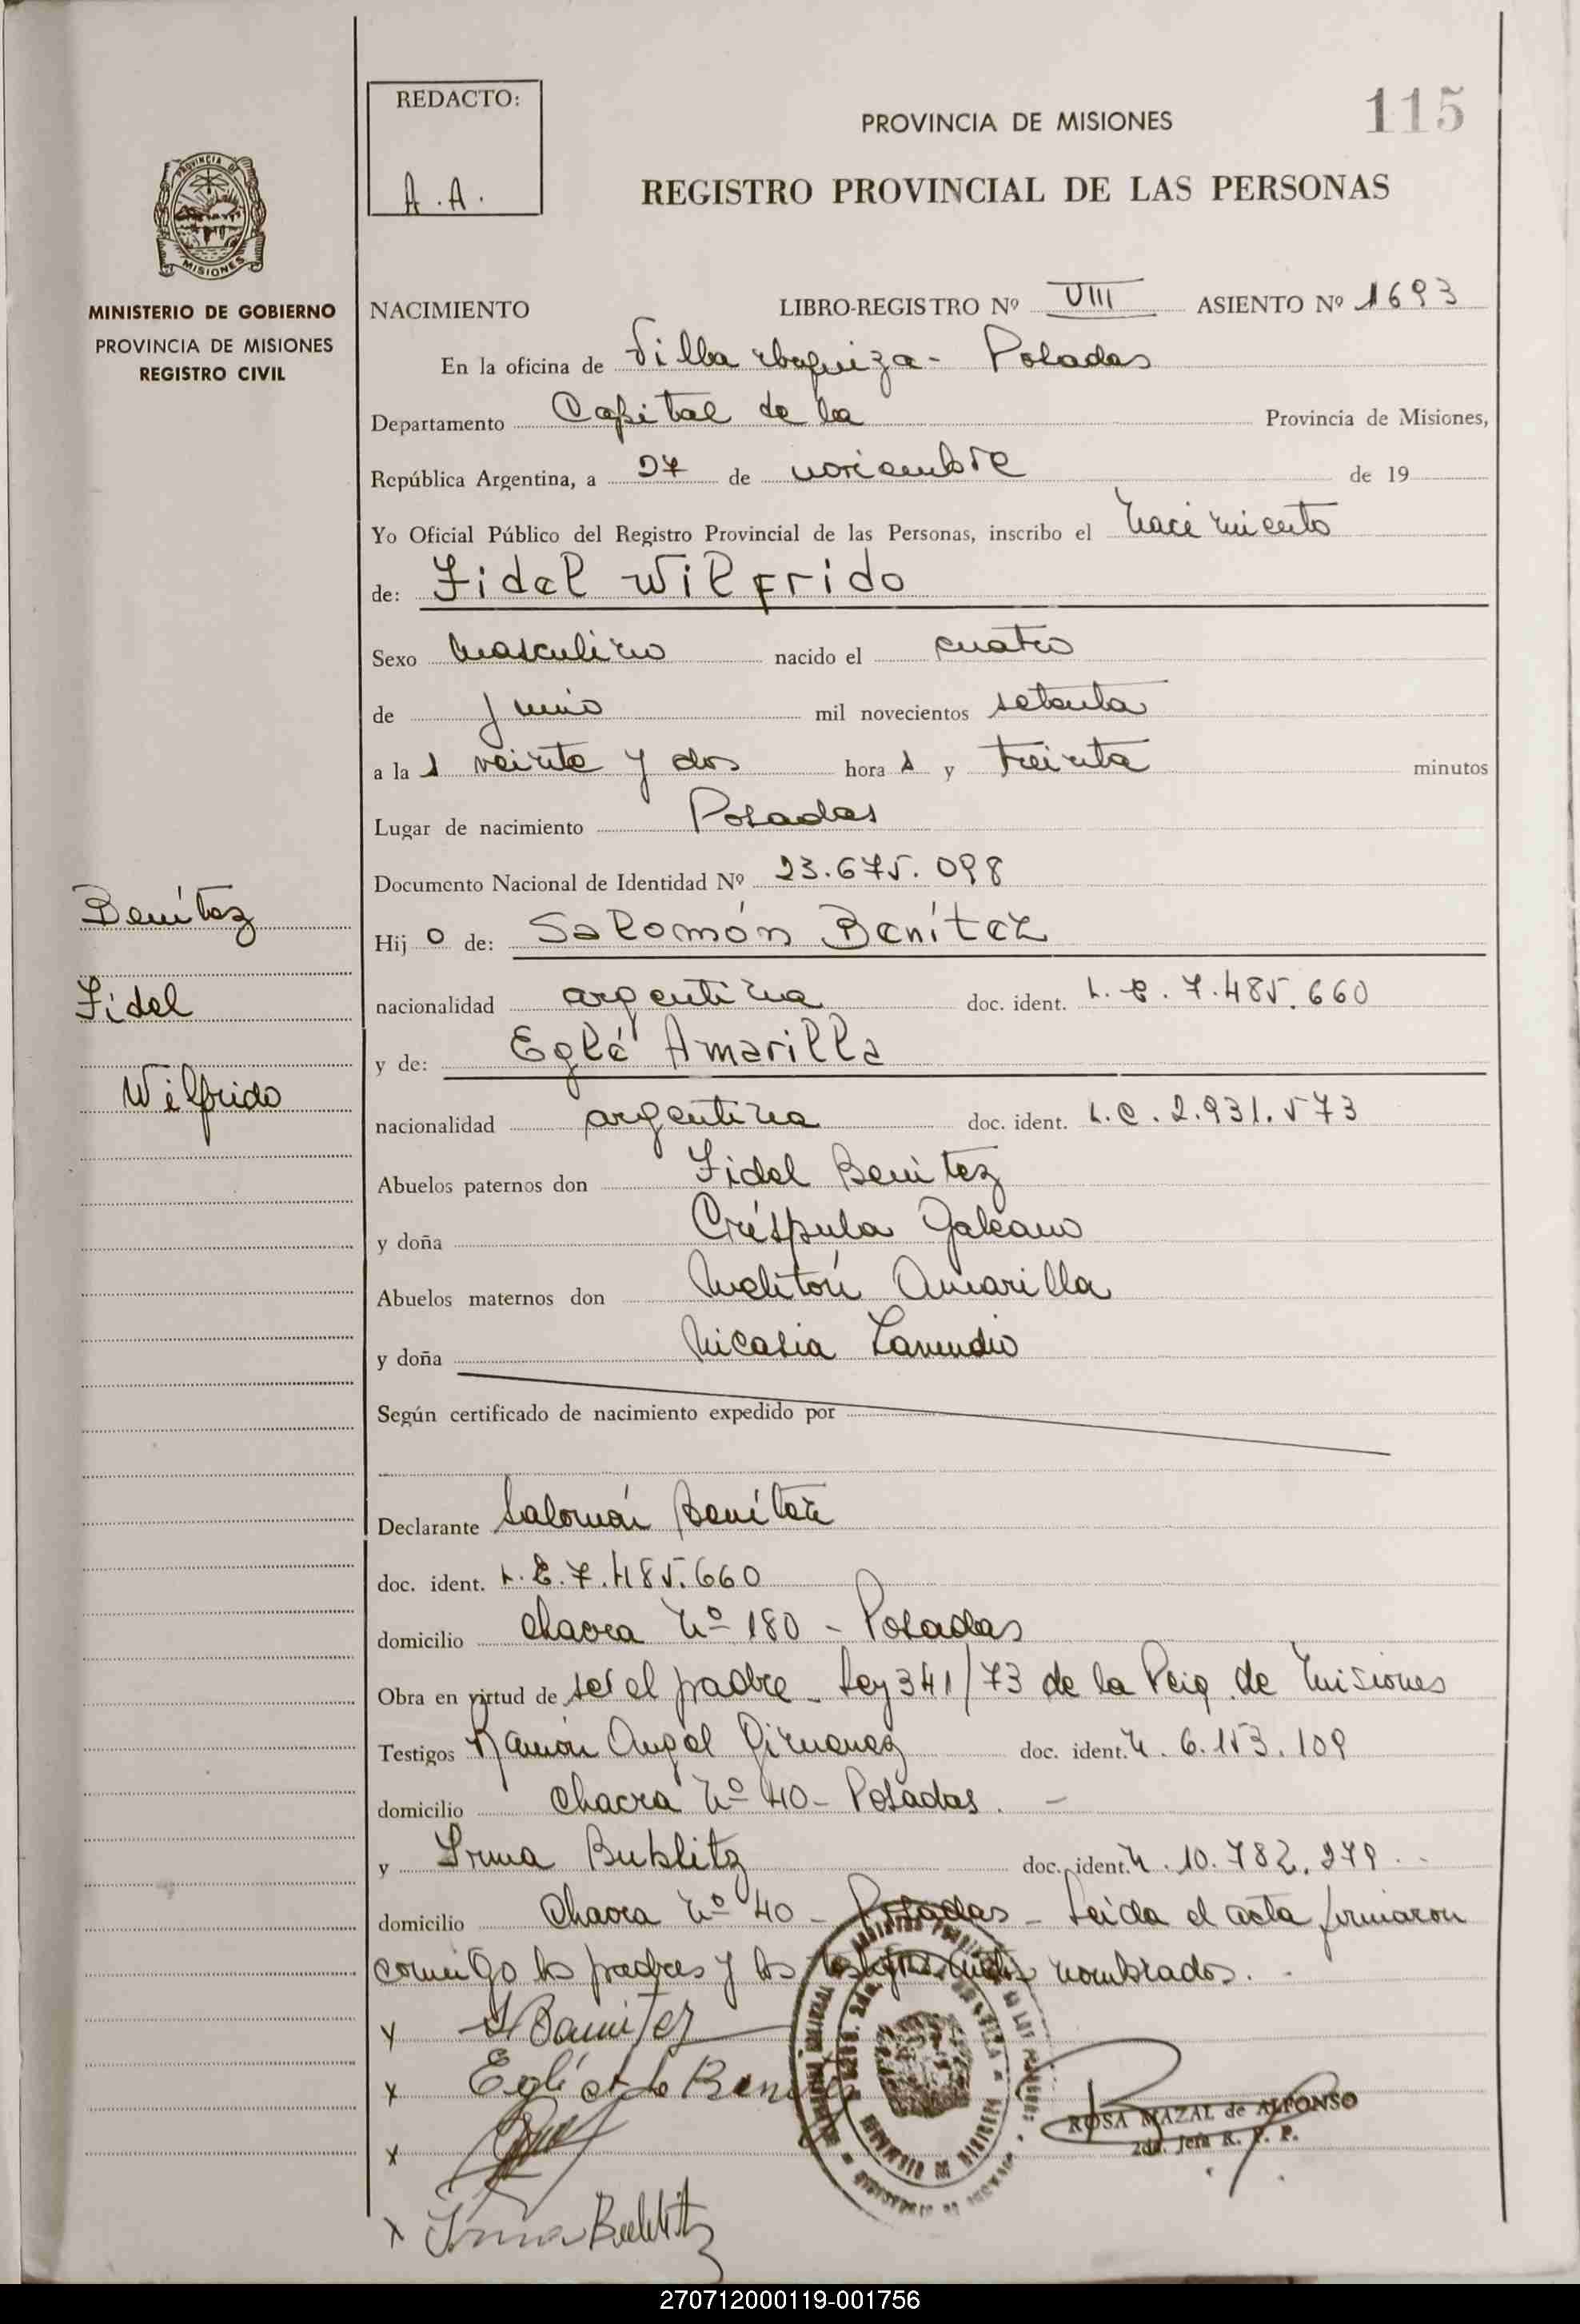 REDACTO:
A.A.
PROVINCIA DE MISIONES
115
REGISTRO PROVINCIAL DE LAS PERSONAS
PROVINCIA DE
MISIONES
MINISTERIO DE GOBIERNO
PROVINCIA DE MISIONES
REGISTRO CIVIL
NACIMIENTO LIBRO-REGISTRO Nº VIII ASIENTO Nº 1693
En la oficina de Villa Urquiza - Posadas
Departamento Capital de la Provincia de Misiones,
República Argentina, a 27 de noviembre de 19
Yo Oficial Público del Registro Provincial de las Personas, inscribo el nacimiento
de: Fidel Wilfrido
Sexo masculino nacido el cuatro
de junio mil novecientos setenta
a la s veinte y dos hora s y treinta minutos
Lugar de nacimiento Posadas
Documento Nacional de Identidad Nº 23.675.098
Benítez
Hij o de: Salomón Benítez
Fidel
nacionalidad argentina doc. ident. L.E. 7.485.660
y de: Eglé Amarilla
Wilfrido
nacionalidad argentina doc. ident. L.C. 2.931.573
Abuelos paternos don Fidel Benítez
y doña Créspula Galeano
Abuelos maternos don Melitón Amarilla
y doña Nicasia
Según certificado de nacimiento expedido por
Declarante Salomón Benítez
doc. ident. L.E. 7.485.660
domicilio chacra Nº 180 - Posadas
Obra en virtud de ser el padre - Ley 341/73 de la de Misiones
Testigos Ramón Angel Gimenez doc. ident. M. 6.153.109
domicilio Chacra Nº 40 - Posadas. -
y Irma Bublitz doc. ident. 10.782.279. -
domicilio Chacra Nº 40 - Posadas - Leída el acta firmaron
conmigo los padres y los testigos nombrados. -
x S Benitez
x Eglé A de Benitez
x
ROSA MAZAL de ALFONSO
2da. Jefa R. P. P.
x Irma Bublitz
270712000119-001756